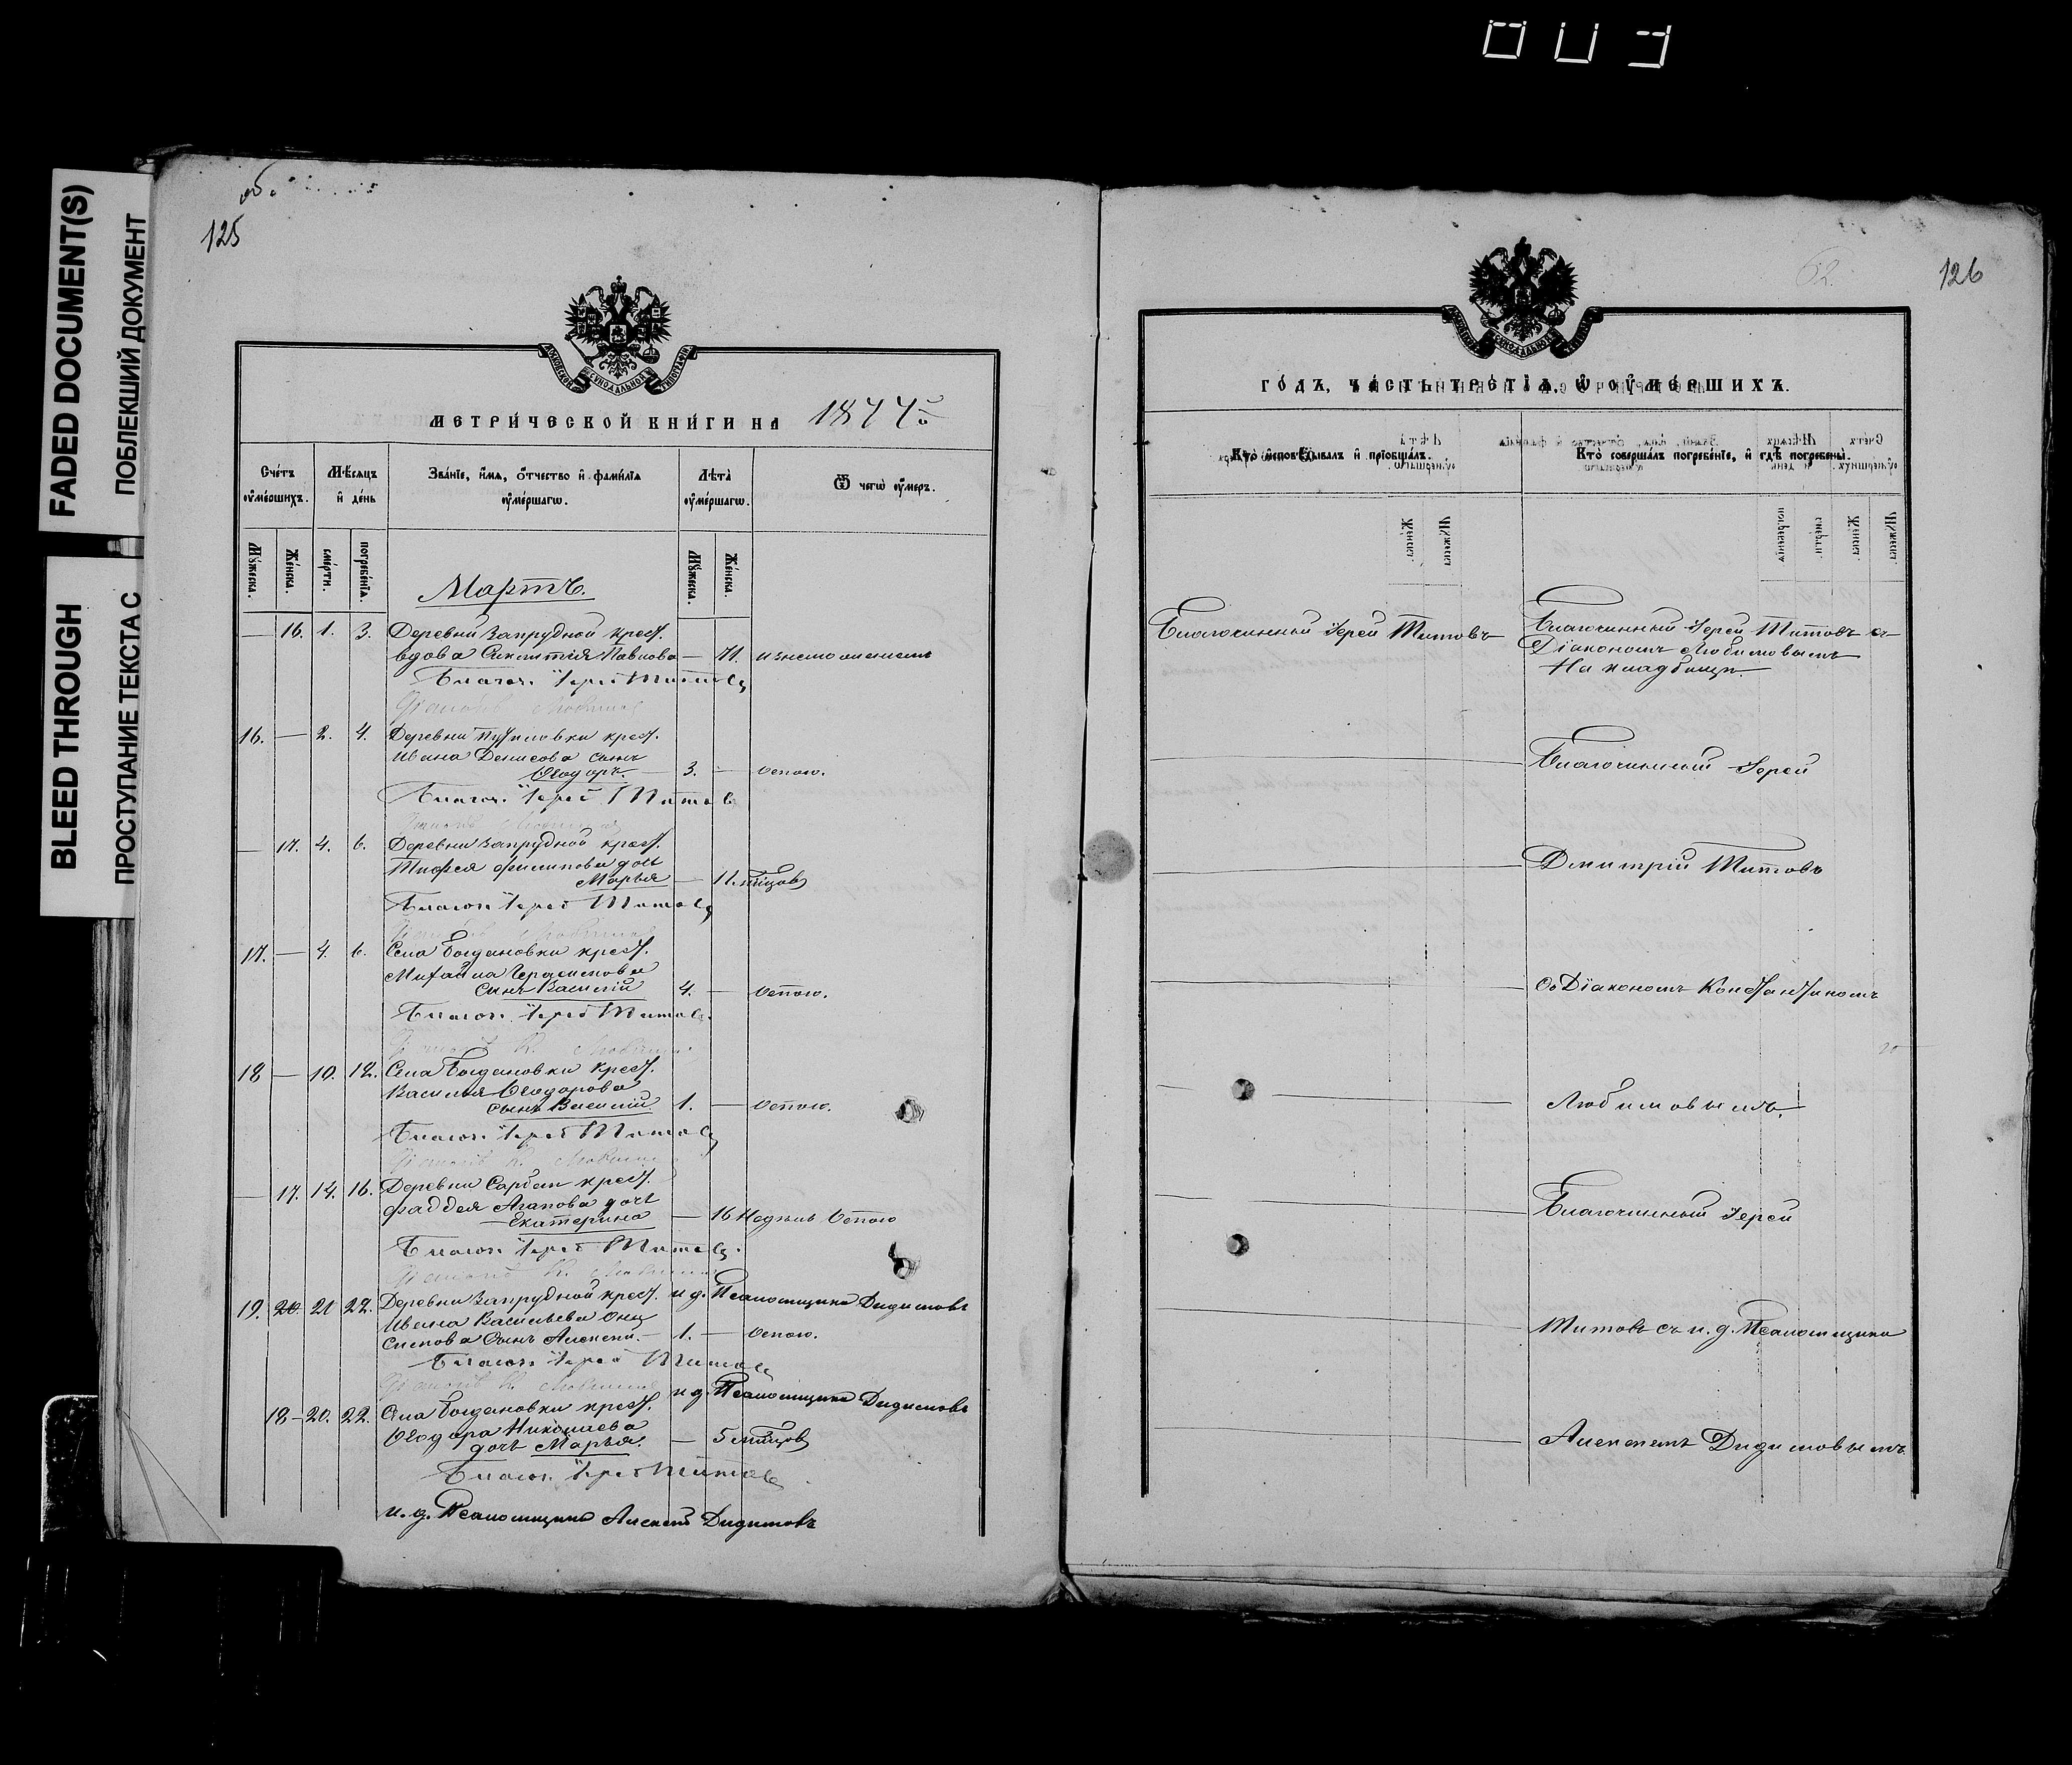 FADED DOCUMENT(S)
ПОБЛЕКШИЙ ДОКУМЕНТ
BLEED THROUGH
ПРОСТУПАНИЕ ТЕКСТА С
125
МЕТРИЧЕСКОЙ КНИГИ НА 1877
Счетъ умершихъ.
Мѣсяцъ и день
Званіе, имя, отчество и фамилія умершаго.
Лѣта умершаго.
Ѿ чегѡ умеръ.
Мужеска.
Женска.
смерти.
погребенія.
Мужеска.
Женска.
Мартъ.
— 16. 1. 3. Деревни Запрудной крест.
вдова Павлова — 71. изнеможенiемъ
Благоч. Іерей Титовъ
16. — 2. 4. Деревни крест.
Ивана Денисова сынъ
Ѳеодоръ. — 3. — оспою.
Благоч. Іерей Титовъ
— 17. 4. 6. Деревни Запрудной крест.
Филипова дочь
Марья — 11. мѣсяцов
Благоч. Іерей Титовъ
17. — 4. 6. Села Богдановки крест.
Михаила Герасимова
сынъ Василій 4. — оспою.
Благоч. Іерей Титовъ
18 — 10. 12. Села Богдановки крест.
Василья Ѳеодорова
сынъ Василій 1. — оспою.
Благоч. Іерей Титовъ
— 17. 14. 16. Деревни Сарбаи крест.
Фаддея Агапова дочь
Екатерина — 16 Недѣль Оспою
Благоч. Іерей Титовъ
19. 20 21 22. Деревни Запрудной крест. и д. Псаломщика Дидимовъ
Ивана Васильева Они
симова Сынъ Алексѣй. — 1. — оспою.
Благоч. Іерей Титовъ
и д. Псаломщика Дидимовъ
18 — 20. 22. Села Богдановки крест.
Ѳеодора Николаева
дочь Марья. — 5 мѣсяцов
Благоч. Іерей Титовъ
и. д. Псаломщика Алексѣй Дидимовъ
62.
126
ГОДЪ, ЧАСТЬ ТРЕТІѦ, Ѿ УМЕРШИХЪ.
Кто исповѣдывалъ и пріобщалъ.
Кто совершалъ погребеніе, и гдѣ погребены.
Благочинный Іерей Титовъ
Благочинный Іерей Титовъ съ
Діакономъ Любимовымъ
На кладбищѣ.
Благочинный Іерей
Дмитрій Титовъ
Со Діакономъ Константиномъ
Любимовымъ.
Благочинный Іерей
Титовъ съ и. д. Псаломщика
Алексѣемъ Дидимовымъ